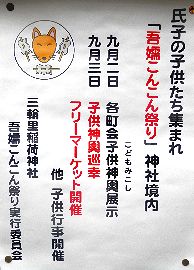 氏子の子供たち集まれ
「吾嬬こんこん祭り」神社境内
こどもみこし
九月二日 各町会子供神輿展示
九月三日 子供神輿巡幸
フリーマーケット開催
他 子供行事開催
三輪里稲荷神社
吾嬬こんこん祭り実行委員会